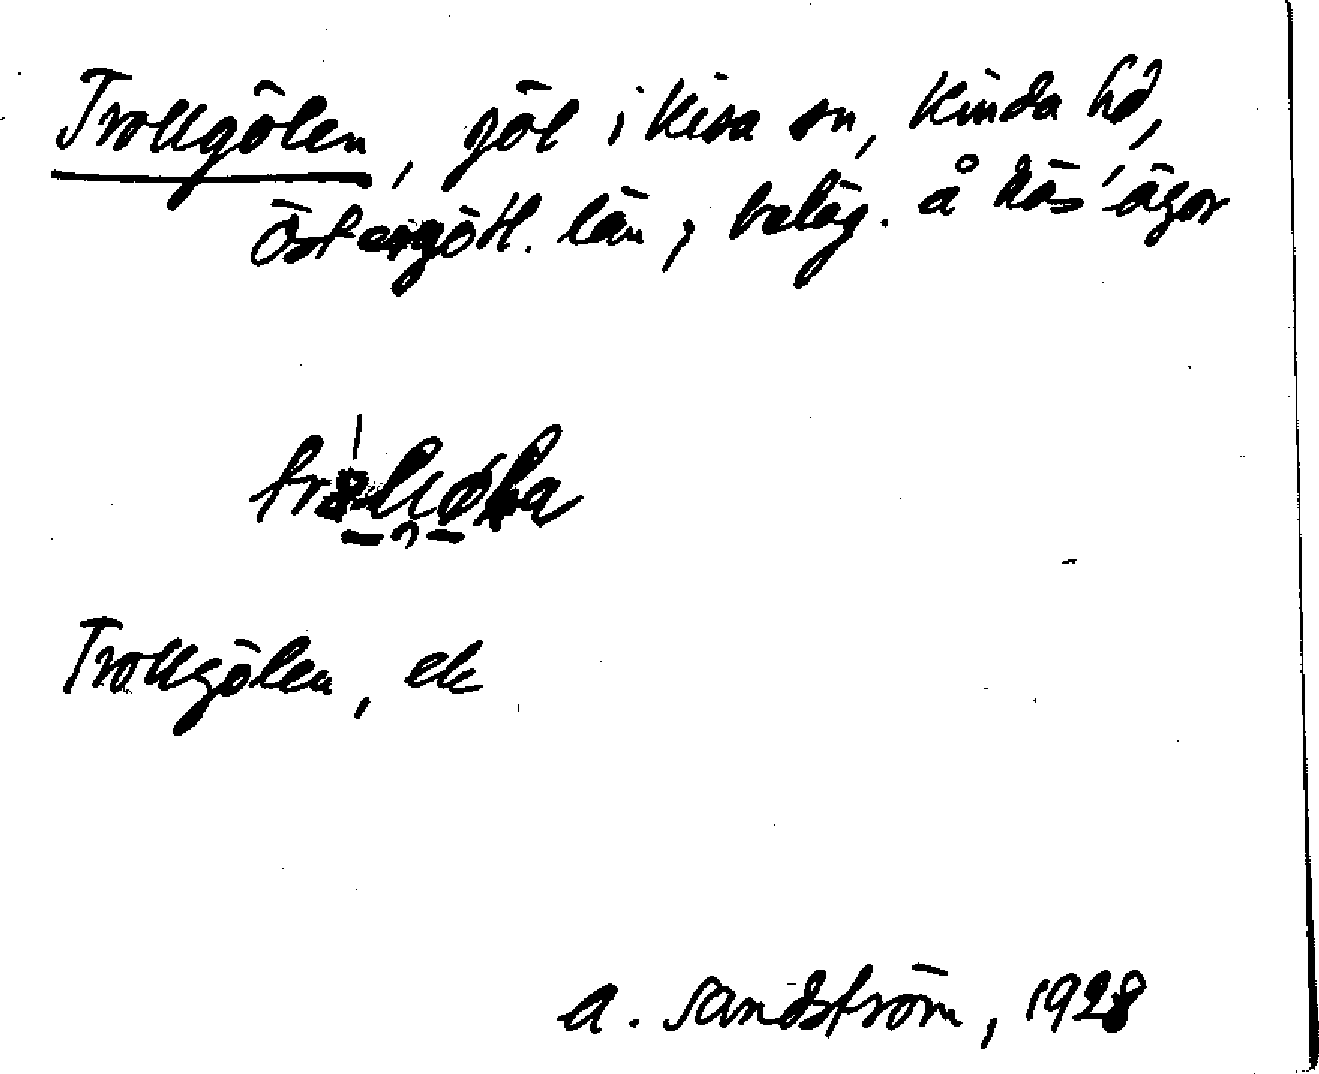 Trollgölen, göl i Kisa sn, Kinda hd,
Östergötl. län, beläg. å Näs' ägor
Trollgölen, ek
A. Sandström, 1928